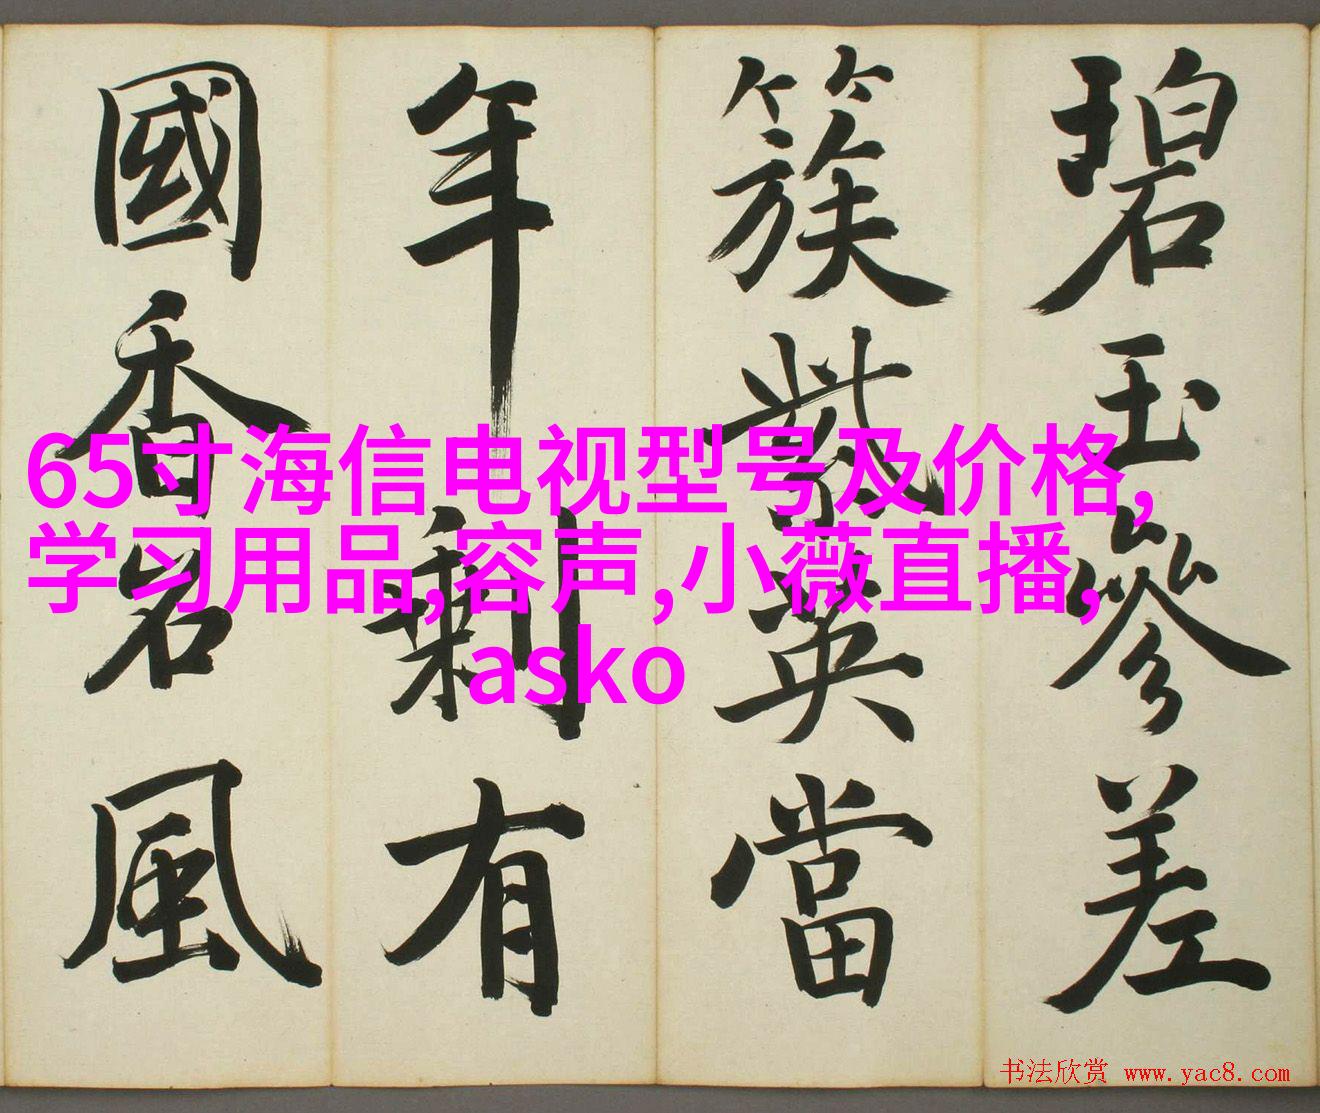 碧玉參差
簇紫英當
年剩有
國香名風
65寸海信电视型号及价格,
学习用品,容声,小薇直播,
asko
书法欣赏 www.yac8.com